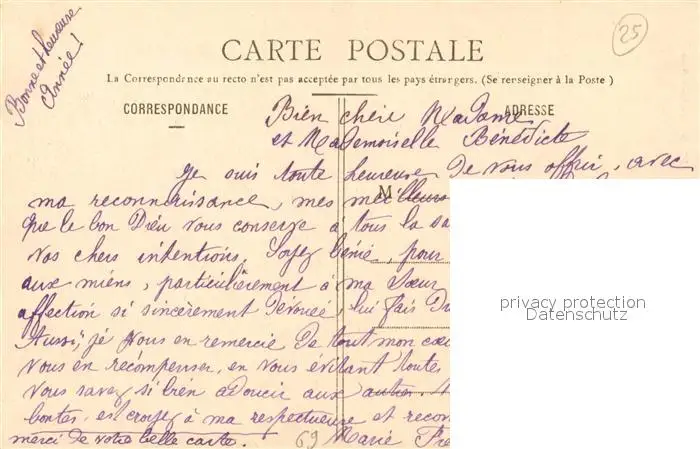 Bonne et heureuse
Année!
25
CARTE POSTALE
La Correspondance au recto n'est pas acceptée par tous les pays étrangers. (Se renseigner à la Poste)
CORRESPONDANCE
ADRESSE
Bien chère Madame
et Mademoiselle Bénédicte
Je suis toute heureuse de vous offrir, avec
ma reconnaissance, mes meilleurs
que le bon Dieu vous conserve à tous la sa
vos chers intentions. Soyez bénie, pour
aux miens, particulièrement à ma Sœur
affection si sincèrement dévouée, lui fais
Aussi, je vous en remercie de tout mon cœu
vous en récompenser, en vous évitant toutes
vous savez si bien adoucir aux autres.
bontés, et croyez à ma respectueuse et recon
merci de votre belle carte.
69 Marie
privacy protection
Datenschutz